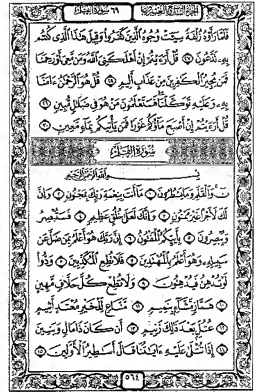 فَلَمَّا رَأَوْهُ زُلْفَةً سِيٓـَٔتْ وُجُوهُ ٱلَّذِينَ كَفَرُوا۟ وَقِيلَ هَٰذَا ٱلَّذِى كُنتُم
بِهِۦ تَدَّعُونَ ٢٧ قُلْ أَرَءَيْتُمْ إِنْ أَهْلَكَنِىَ ٱللَّهُ وَمَن مَّعِىَ أَوْ رَحِمَنَا
فَمَن يُجِيرُ ٱلْكَٰفِرِينَ مِنْ عَذَابٍ أَلِيمٍ ٢٨ قُلْ هُوَ ٱلرَّحْمَٰنُ ءَامَنَّا
بِهِۦ وَعَلَيْهِ تَوَكَّلْنَا فَسَتَعْلَمُونَ مَنْ هُوَ فِى ضَلَٰلٍ مُّبِينٍ ٢٩
قُلْ أَرَءَيْتُمْ إِنْ أَصْبَحَ مَآؤُكُمْ غَوْرًا فَمَن يَأْتِيكُم بِمَآءٍ مَّعِينٍۭ ٣٠
سُورَةُ القَلَمِ
بِسْمِ ٱللَّهِ ٱلرَّحْمَٰنِ ٱلرَّحِيمِ
نٓ وَٱلْقَلَمِ وَمَا يَسْطُرُونَ ١ مَآ أَنتَ بِنِعْمَةِ رَبِّكَ بِمَجْنُونٍ ٢ وَإِنَّ
لَكَ لَأَجْرًا غَيْرَ مَمْنُونٍ ٣ وَإِنَّكَ لَعَلَىٰ خُلُقٍ عَظِيمٍ ٤ فَسَتُبْصِرُ
وَيُبْصِرُونَ ٥ بِأَييِّكُمُ ٱلْمَفْتُونُ ٦ إِنَّ رَبَّكَ هُوَ أَعْلَمُ بِمَن ضَلَّ عَن
سَبِيلِهِۦ وَهُوَ أَعْلَمُ بِٱلْمُهْتَدِينَ ٧ فَلَا تُطِعِ ٱلْمُكَذِّبِينَ ٨ وَدُّوا۟
لَوْ تُدْهِنُ فَيُدْهِنُونَ ٩ وَلَا تُطِعْ كُلَّ حَلَّافٍ مَّهِينٍ
١٠ هَمَّازٍ مَّشَّآءٍۭ بِنَمِيمٍ ١١ مَّنَّاعٍ لِّلْخَيْرِ مُعْتَدٍ أَثِيمٍ
١٢ عُتُلٍّۭ بَعْدَ ذَٰلِكَ زَنِيمٍ ١٣ أَن كَانَ ذَا مَالٍ وَبَنِينَ
١٤ إِذَا تُتْلَىٰ عَلَيْهِ ءَايَٰتُنَا قَالَ أَسَٰطِيرُ ٱلْأَوَّلِينَ ١٥
٥٦٤